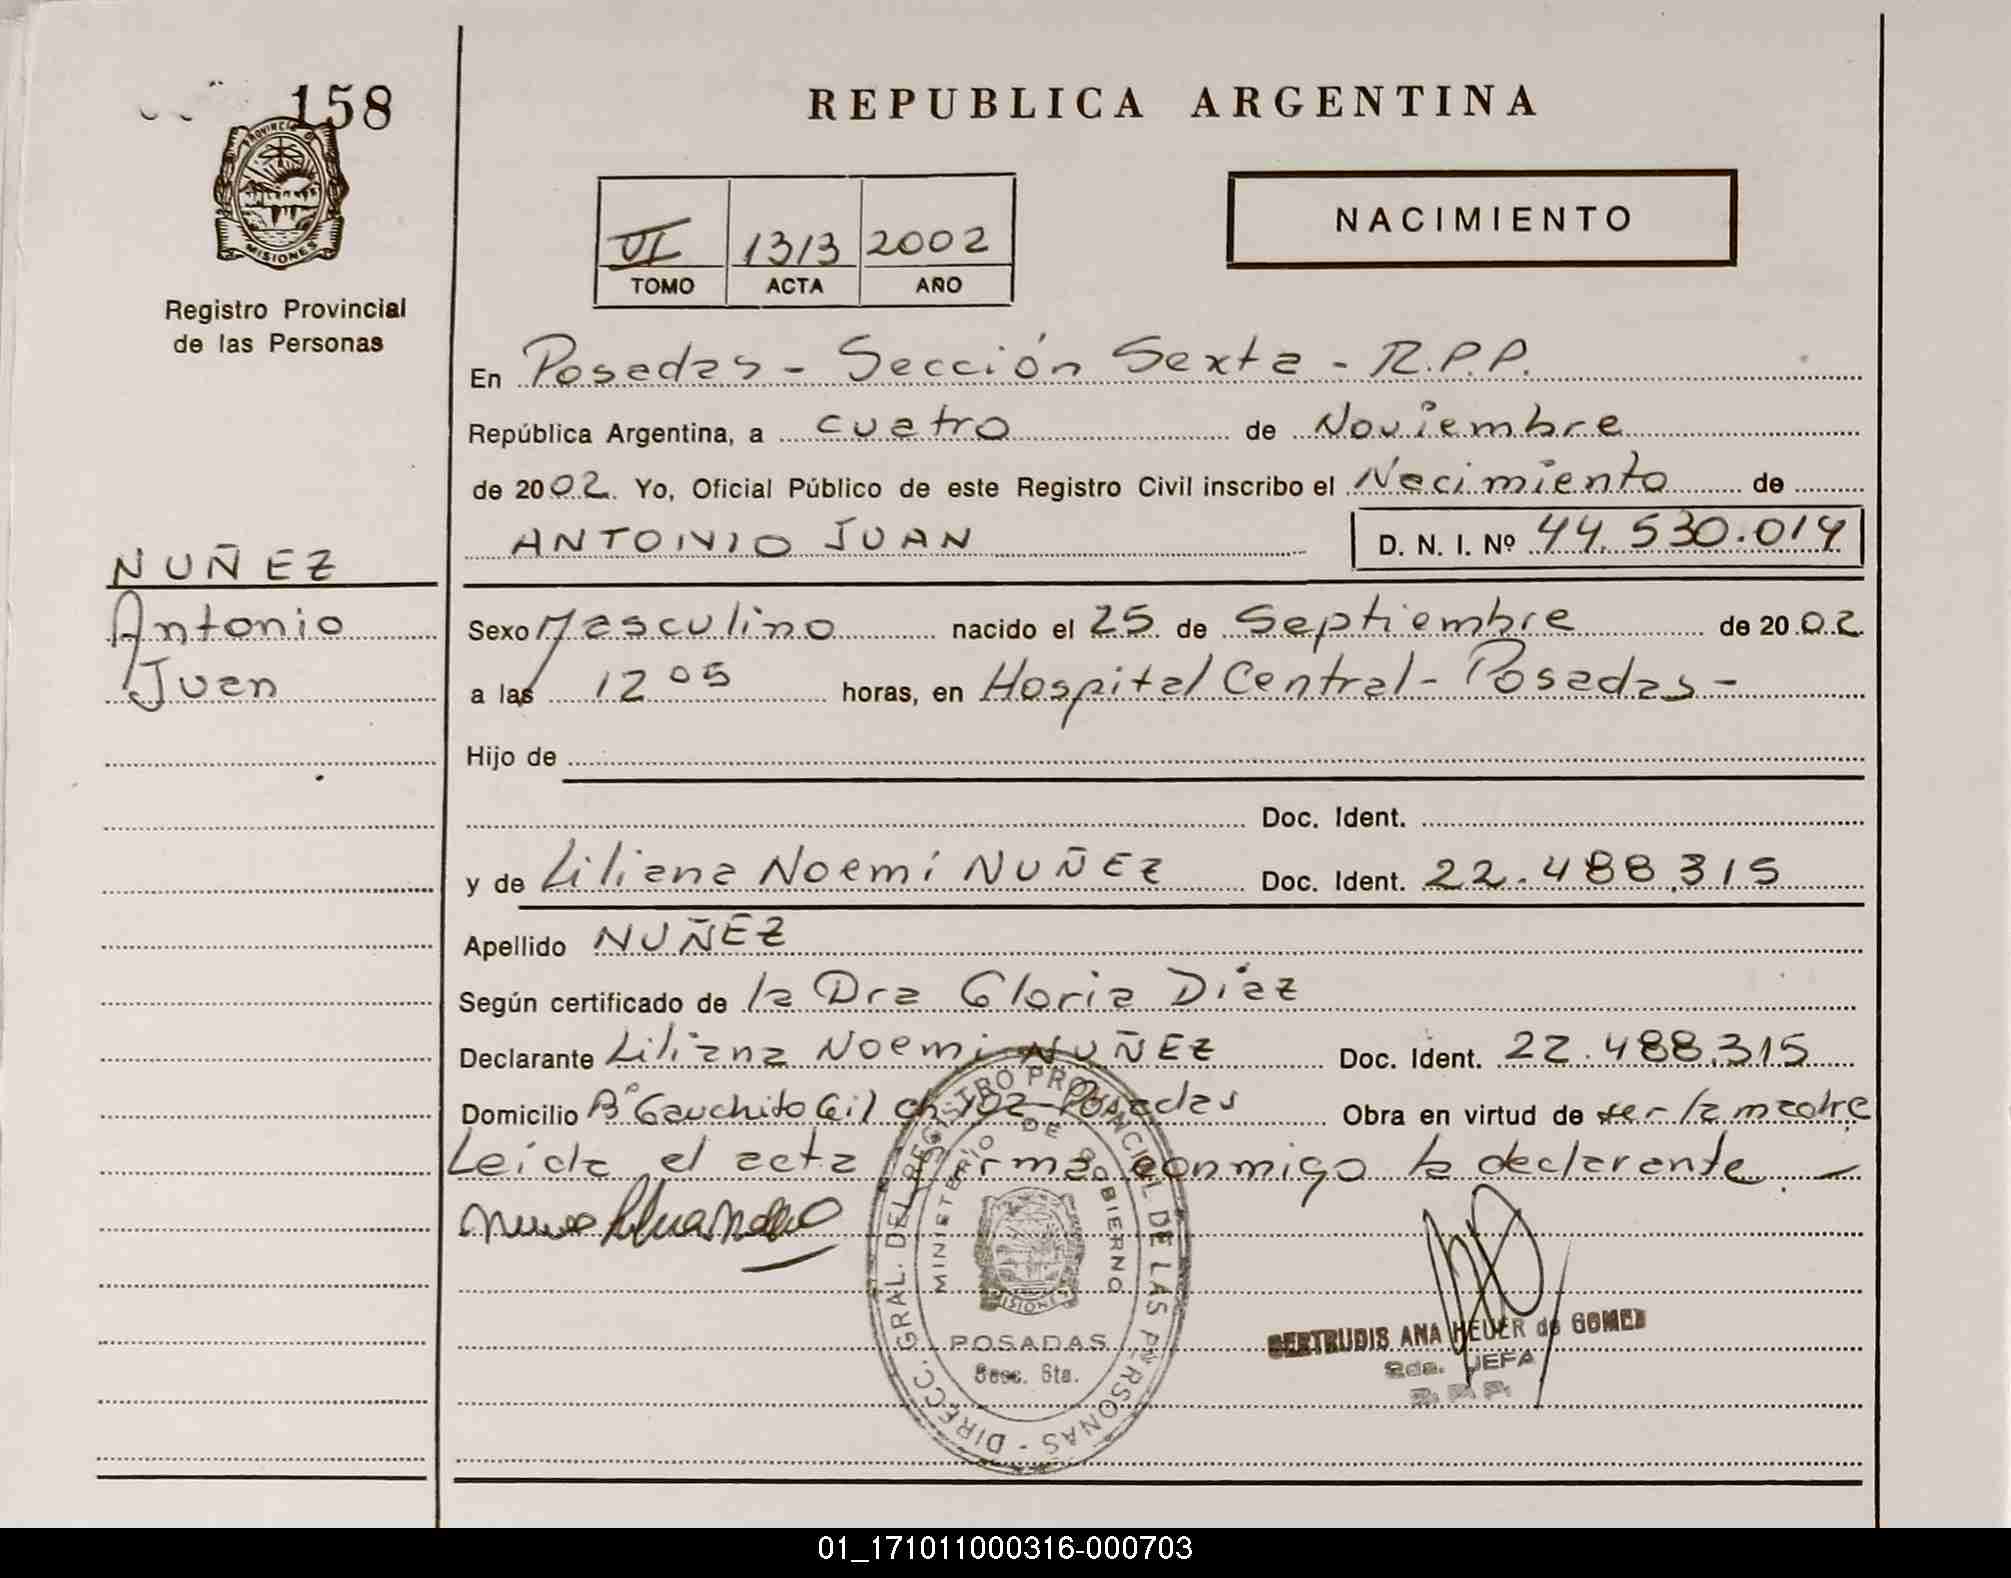 158
PROVINCIA DE
MISIONES
Registro Provincial
de las Personas
REPUBLICA ARGENTINA
NACIMIENTO
VI 1313 2002
TOMO ACTA AÑO
En Posadas - Sección Sexta - R.P.P.
República Argentina, a cuatro de Noviembre
de 2002. Yo, Oficial Público de este Registro Civil inscribo el Nacimiento de
ANTONIO JUAN D. N. I. Nº 44.530.014
NUÑEZ
Antonio
Juan
Sexo Masculino nacido el 25 de Septiembre de 2002
a las 12 05 horas, en Hospital Central - Posadas -
Hijo de
Doc. Ident.
y de Liliana Noemí NUÑEZ Doc. Ident. 22.488.315
Apellido NUÑEZ
Según certificado de la Dra Gloria Díaz
Declarante Liliana Noemi NUÑEZ Doc. Ident. 22.488.315
Domicilio Bº Gauchito Gil ch 192 - Posadas Obra en virtud de ser la madre
Leída el acta firma conmigo la declarante. -
DIRECC. GRAL. DEL REGISTRO PROVINCIAL DE LAS PERSONAS -
MINISTERIO DE GOBIERNO
MISIONES
POSADAS
Secc. 6ta.
GERTRUDIS ANA HEUER de GOMEZ
2da. JEFA
R. P. P.
01_171011000316-000703